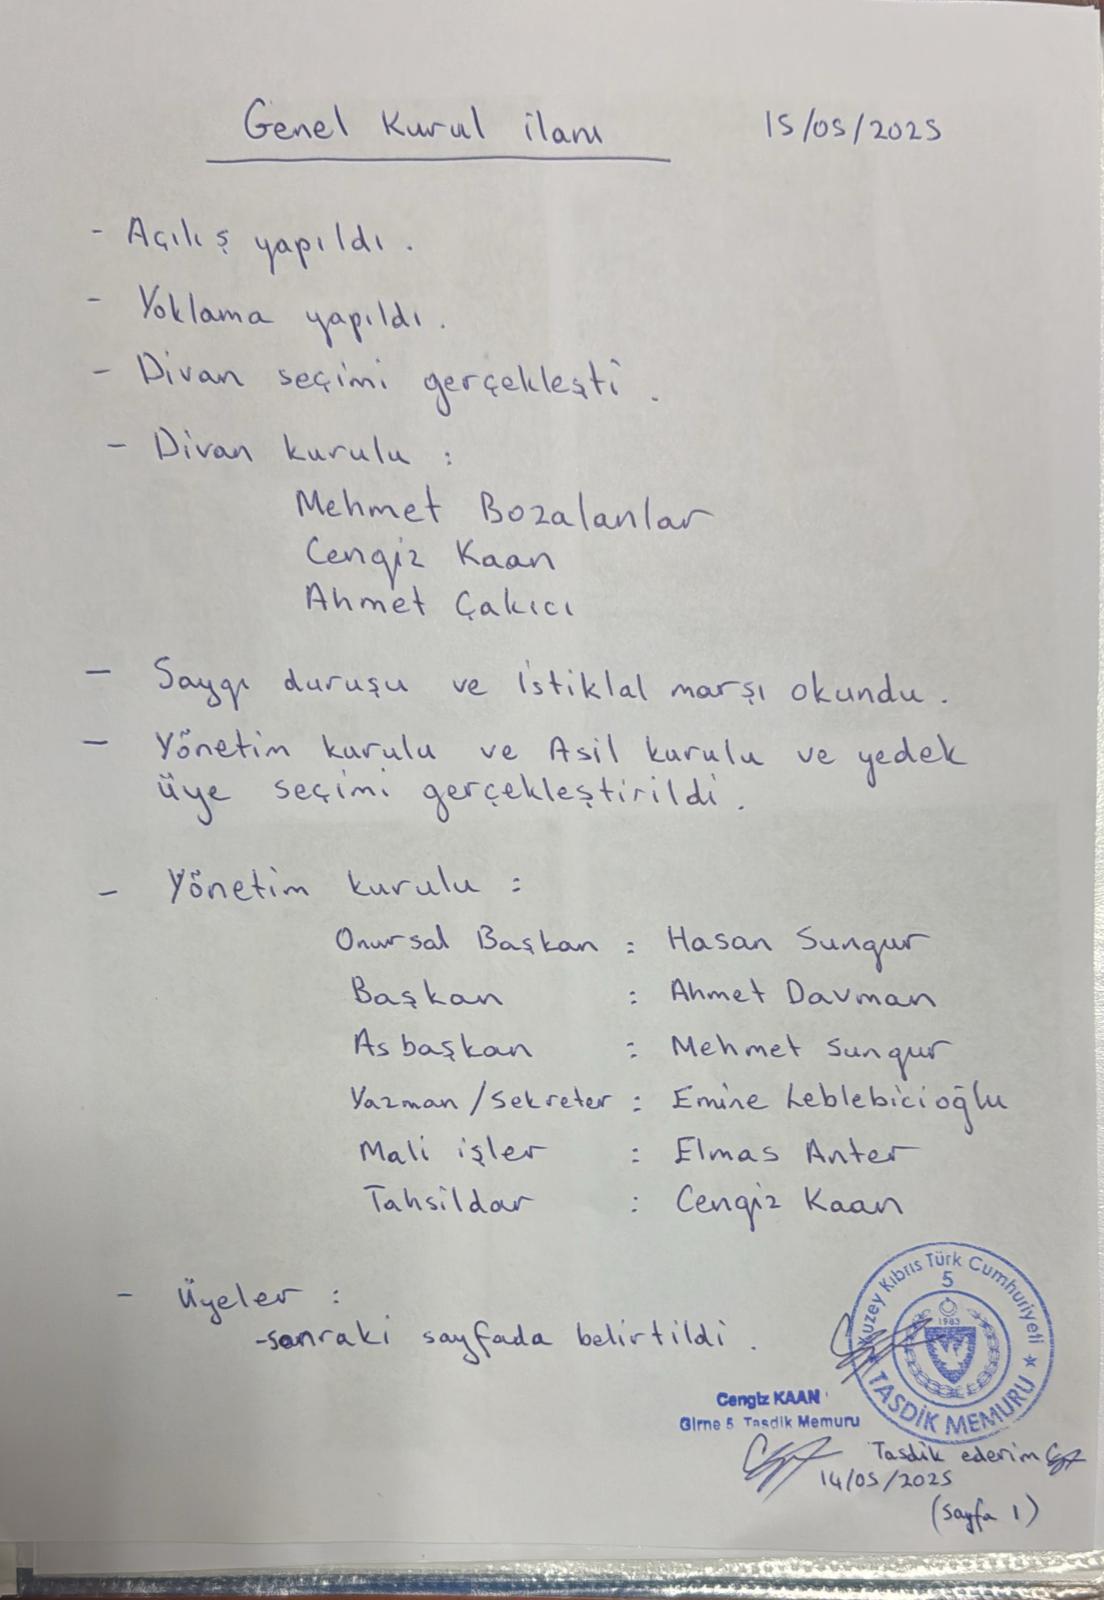 Genel Kurul ilanı 15/05/2025
- Açılış yapıldı.
- Yoklama yapıldı.
- Divan seçimi gerçekleşti.
- Divan kurulu :
Mehmet Bozalanlar
Cengiz Kaan
Ahmet Çakıcı
- Saygı duruşu ve istiklal marşı okundu.
- Yönetim kurulu ve Asil kurulu ve yedek
üye seçimi gerçekleştirildi.
- Yönetim kurulu :
Onursal Başkan : Hasan Sungur
Başkan : Ahmet Davman
As başkan : Mehmet Sungur
Yazman/Sekreter : Emine Leblebicioğlu
Mali işler : Elmas Anter
Tahsildar : Cengiz Kaan
- Üyeler :
-sonraki sayfada belirtildi.
Kuzey Kıbrıs Türk Cumhuriyeti
5
1983
★ TASDİK MEMURU ★
Cengiz KAAN
Girne 5 Tasdik Memuru
Tasdik ederim
14/05/2025
(sayfa 1)